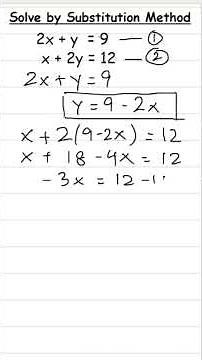 Solve by Substitution Method
2x + y = 9 — ①
x + 2y = 12 — ②
2x + y = 9
y = 9 - 2x
x + 2(9-2x) = 12
x + 18 - 4x = 12
- 3x = 12 -